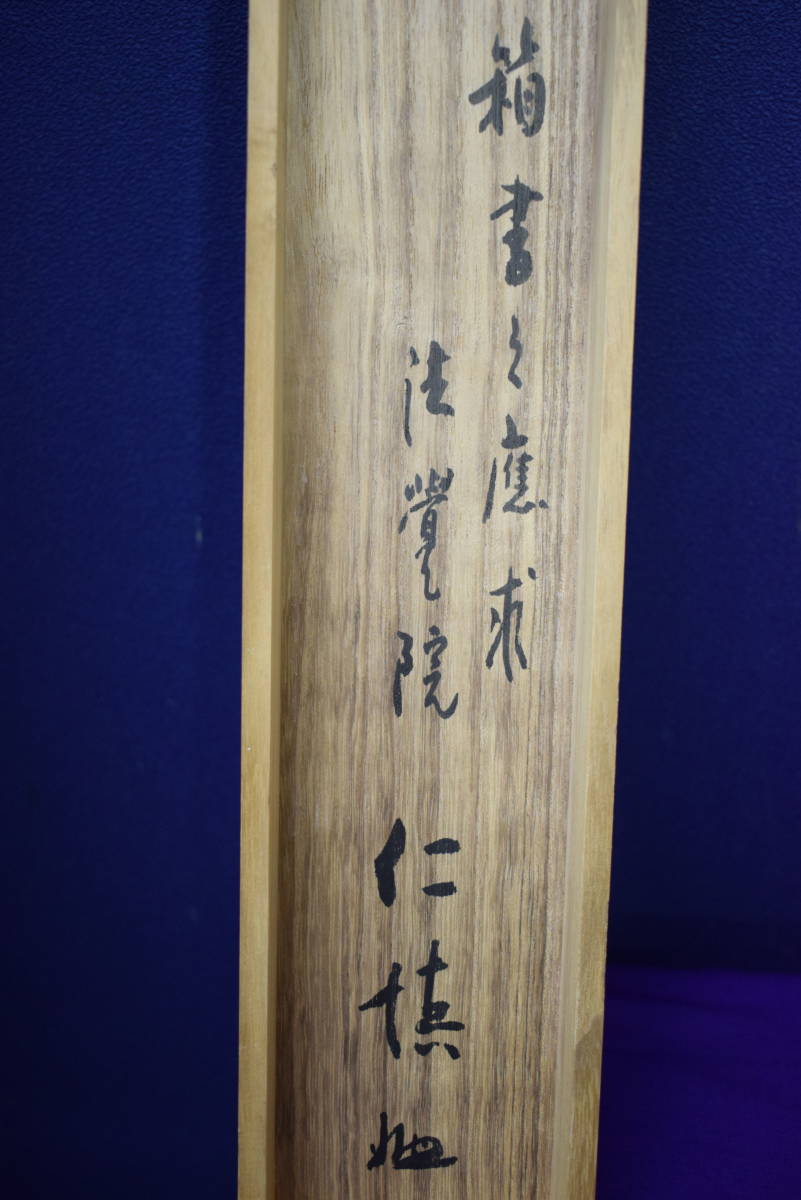 箱書之應求
法覺院 仁慎